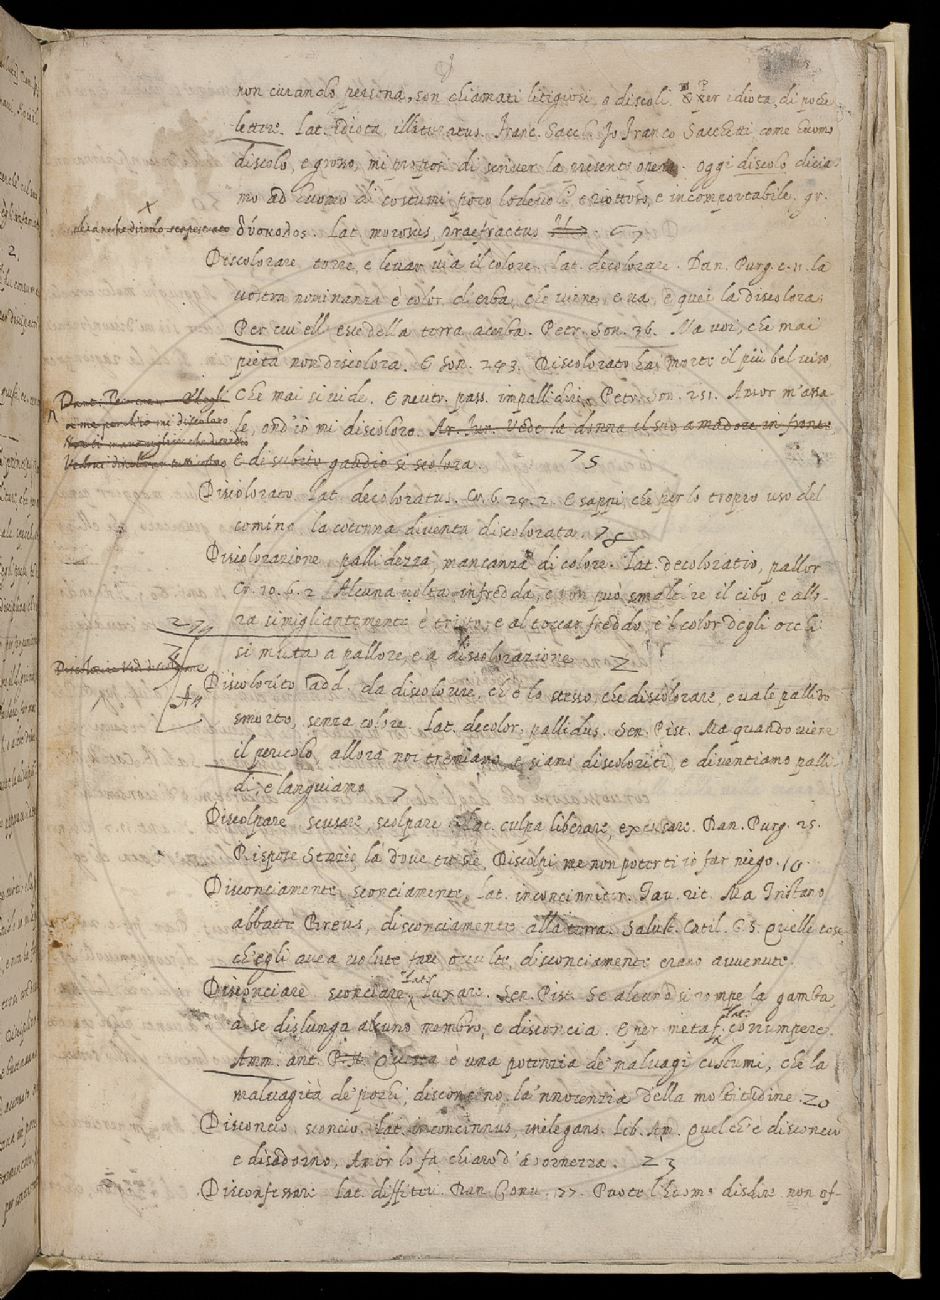 non curando persona, son chiamati litigiosi, o discoli. Per idiota, di poche
lettere. Lat. idiota, illiteratus. Franc. Sacch. Io Franco Sacchetti come huomo
discolo, e grosso, mi proposi di scriver la presente opera. oggi discolo dicia-
mo ad huomo di costumi poco lodevoli e riottoso, e incomportabile. gr.
δύσκολος. Lat. morosus, praefractus
Discolorare torre, e levar via il colore. Lat. decolorare. Dan. Purg. c. 11. la
vostra nominanza è color d'erba, che viene, e va, e quei la discolora,
Per cui ell' esce della terra acerba. Petr. Son. 36. Ma voi, che mai
pietà non discolora. E son. 243. Discolorato hai morte il più bel viso
Che mai si vide. E neutr. pass. impallidir. Petr. Son. 251. Amor m'assa-
le, ond'io mi discoloro. Ar. Fur. Vede la donna il suo amadore in fronte
E di subito gaudio si scolora 75
Discolorato. Lat. decoloratus. Cr. 6. 24. 2. E sappi, che per lo troppo uso del
comino la cotenna diventa discolorata. 75
Discolorazione, pallidezza, mancanza di colore. Lat. decoloratio, pallor
Cr. 10. 6. 2. Alcuna volta infredda, e non può smaltire il cibo, e allo-
ra simigliantemente è tristo, e al toccar freddo, e 'l color degli occhi
27
si muta a pallore, e a discolorazione 2
Discolorito add. da discolorire, ch'è lo stesso, che discolorare, e vale pallido
smorto, senza colore. Lat. decolor, pallidus. Sen. Pist. Ma quando viene
il pericolo, allora noi tremiamo, e siamo discoloriti, e diventiamo palli-
di, e languiamo 7
Discolpare scusare, scolpare Lat. culpa liberare, excusare. Dan. Purg. 25.
Rispose Stazio, là dove tu sie, Discolpi me non potert' io far niego. 10
Disconciamente sconciamente, Lat. inconcinniter. Tav. rit. Ma Tristano
abbatte Breus, disconciamente alla terra. Salust. Catil. G. S. Quelle cose
ch'egli avea volute fare occulte, disconciamente erano avvenute.
Disconciare sconciare, Lat. luxare. Sen. Pist. Se alcuno si rompe la gamba,
o se dislunga alcuno membro, e disconcia. E per metaf. Lat. corrumpere.
Amm. ant. Questa è una potenzia de' malvagi costumi, che la
malvagità de' pochi disconcino la 'nnocenzia della moltitudine. 20
Disconcio, sconcio. Lat. inconcinnus, inelegans. Lib. Am. Quel ch'è disconcio
e disadorno, Amor lo fa chiaro d'adornezza. 23
Disconfessare Lat. diffiteri. Dan. Conv. 77. Puote l'huomo disdire non of-